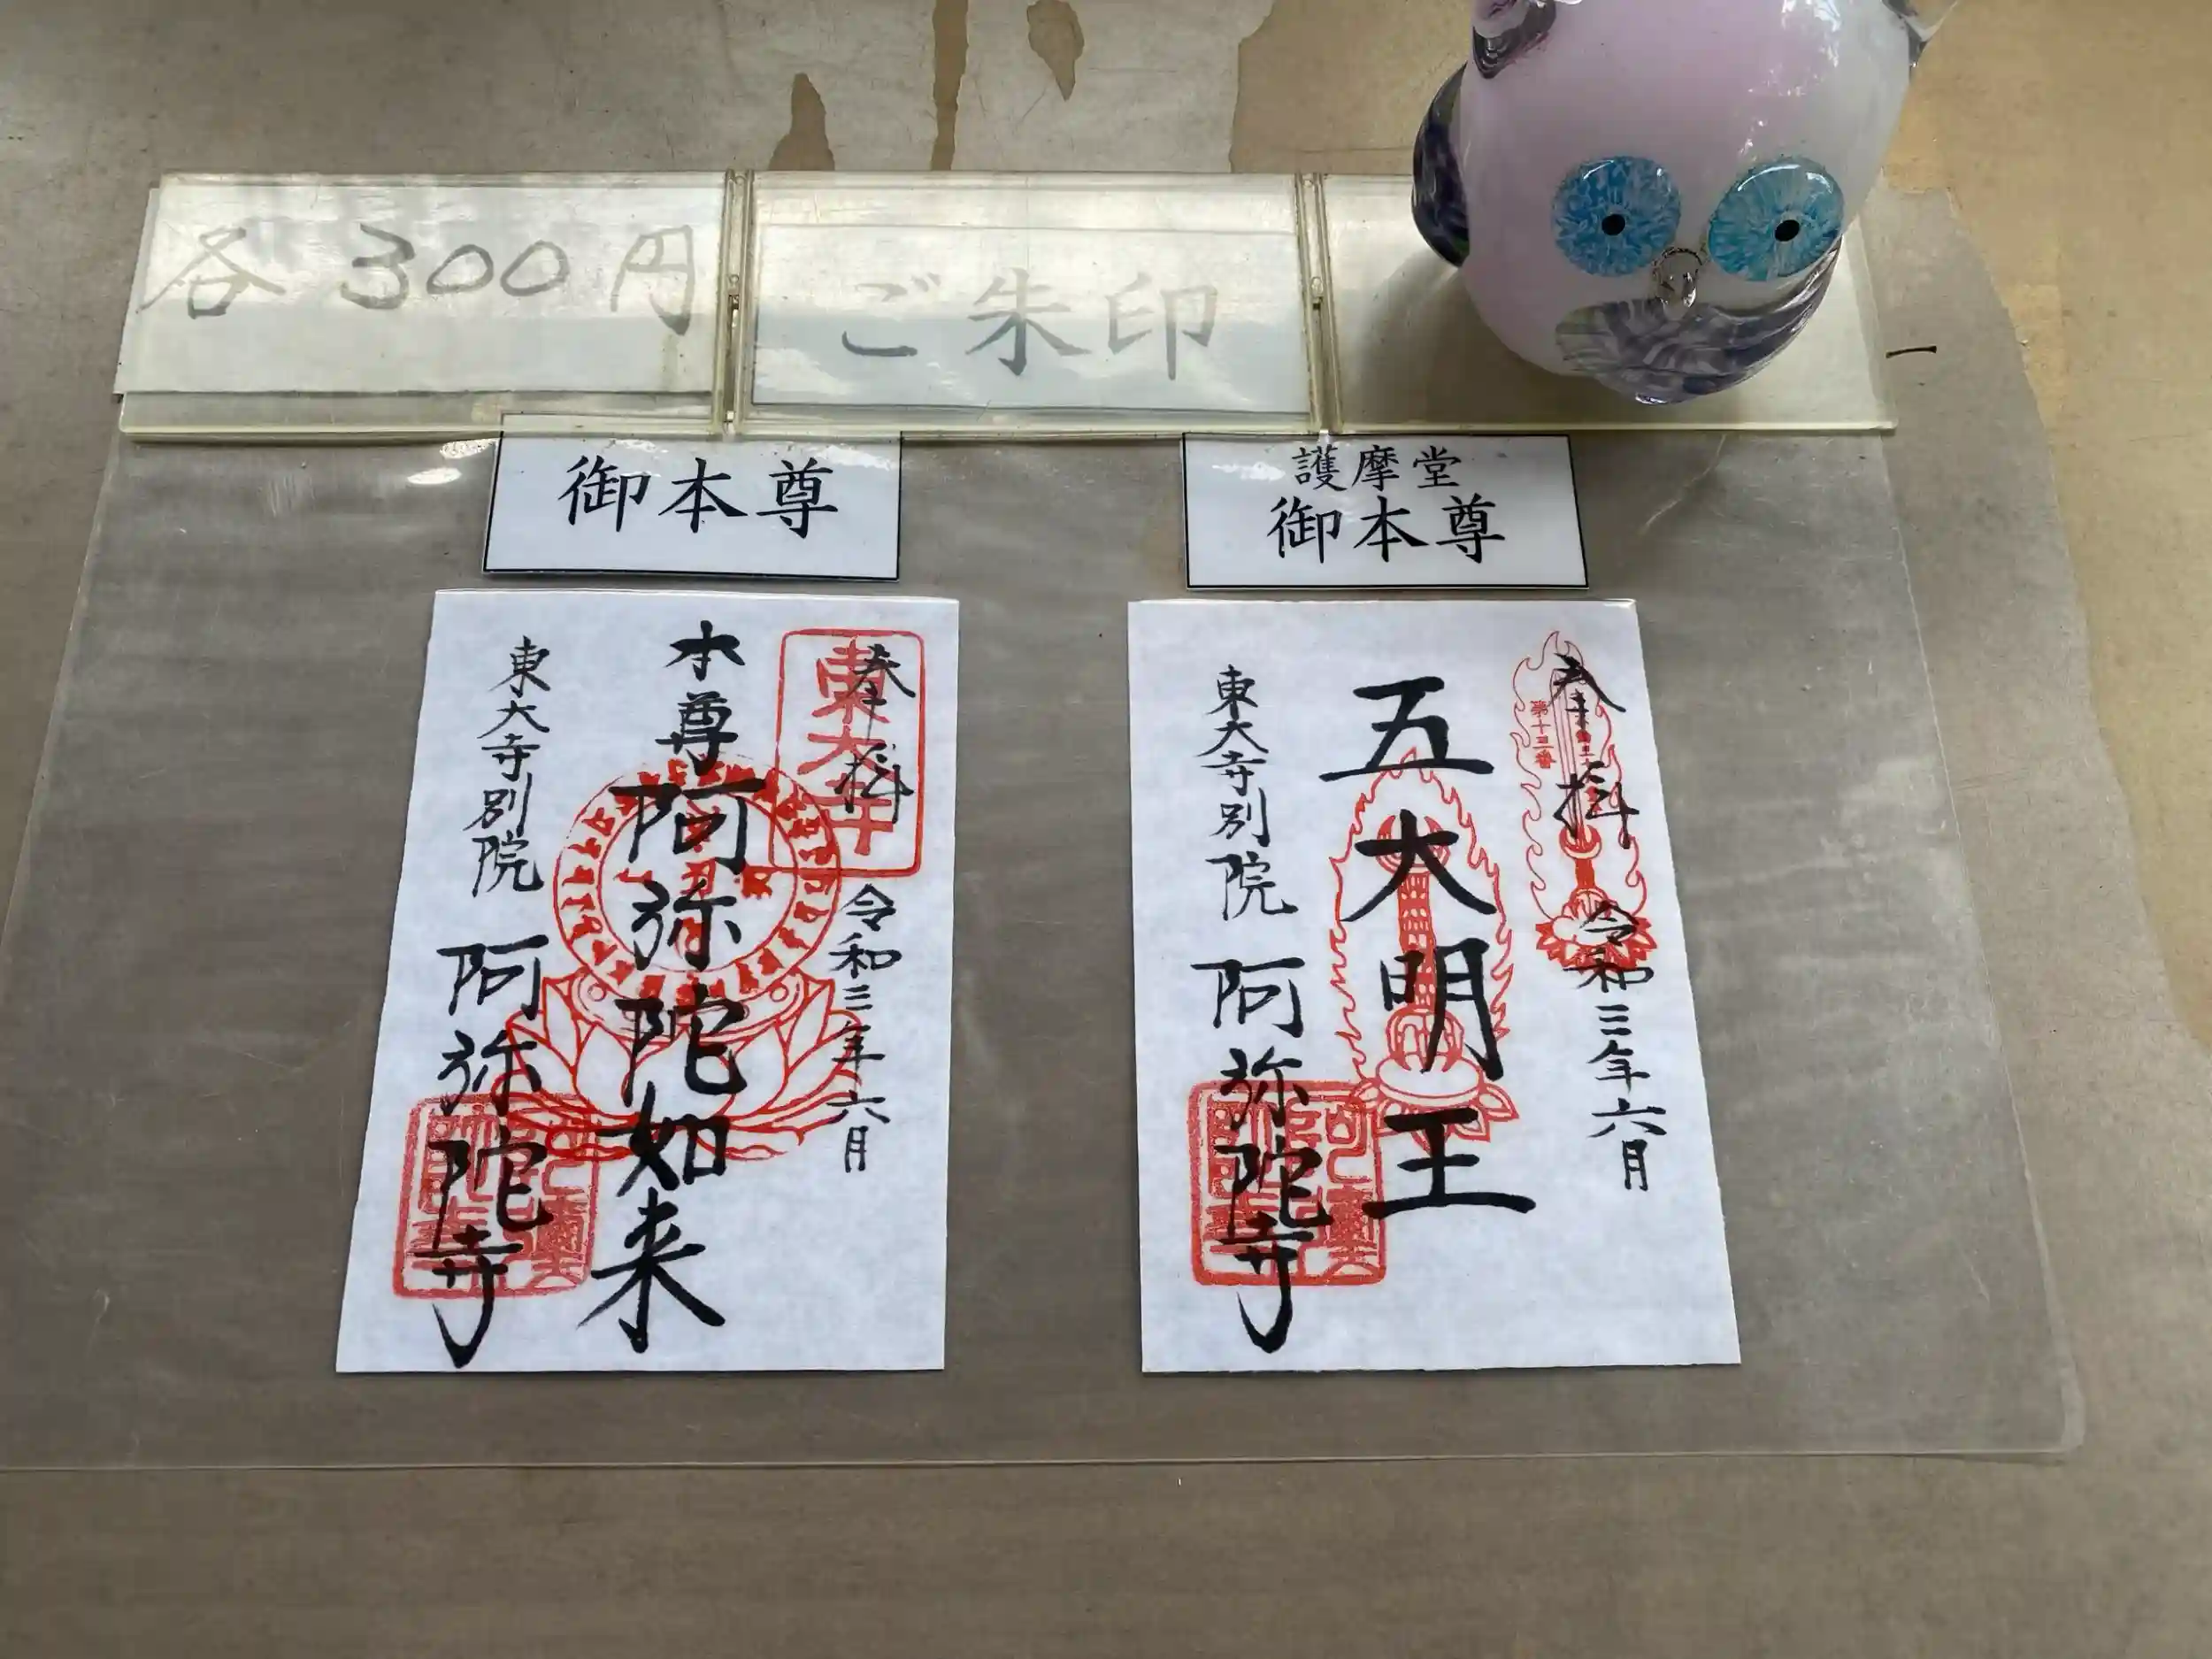 各300円
ご朱印
御本尊
護摩堂
御本尊
奉拝
令和三年六月
東大寺
本尊阿弥陀如来
東大寺別院
阿弥陀寺
奉拝
第十三番
令和三年六月
五大明王
東大寺別院
阿弥陀寺